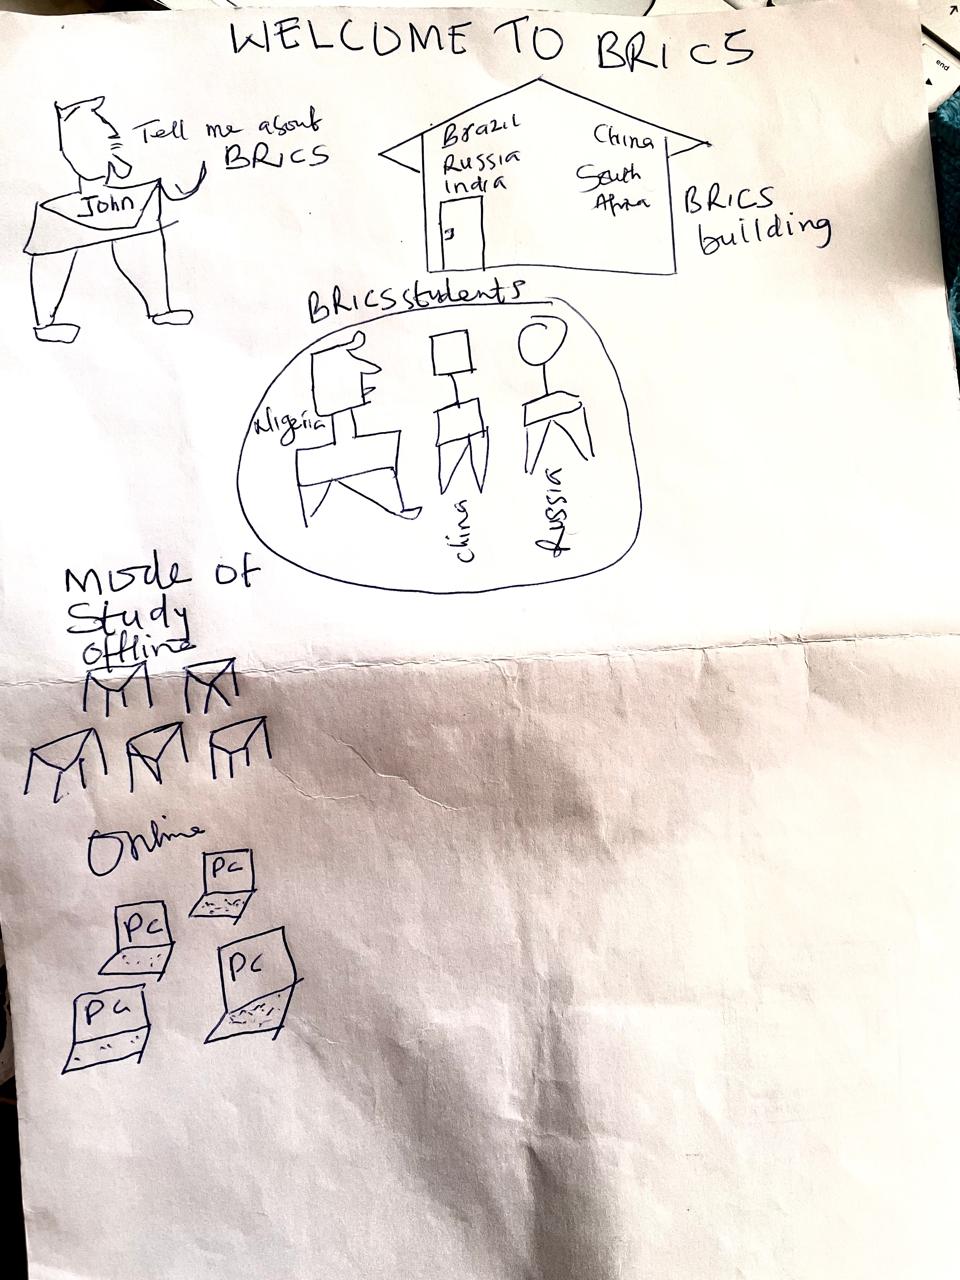 WELCOME TO BRICS
Tell me about
BRICS
John
Brazil
Russia
India
China
South
Africa
BRICS
building
BRICS students
Nigeria
China
Russia
Mode of
Study
offline
Online
PC
PC
PC
PC
end